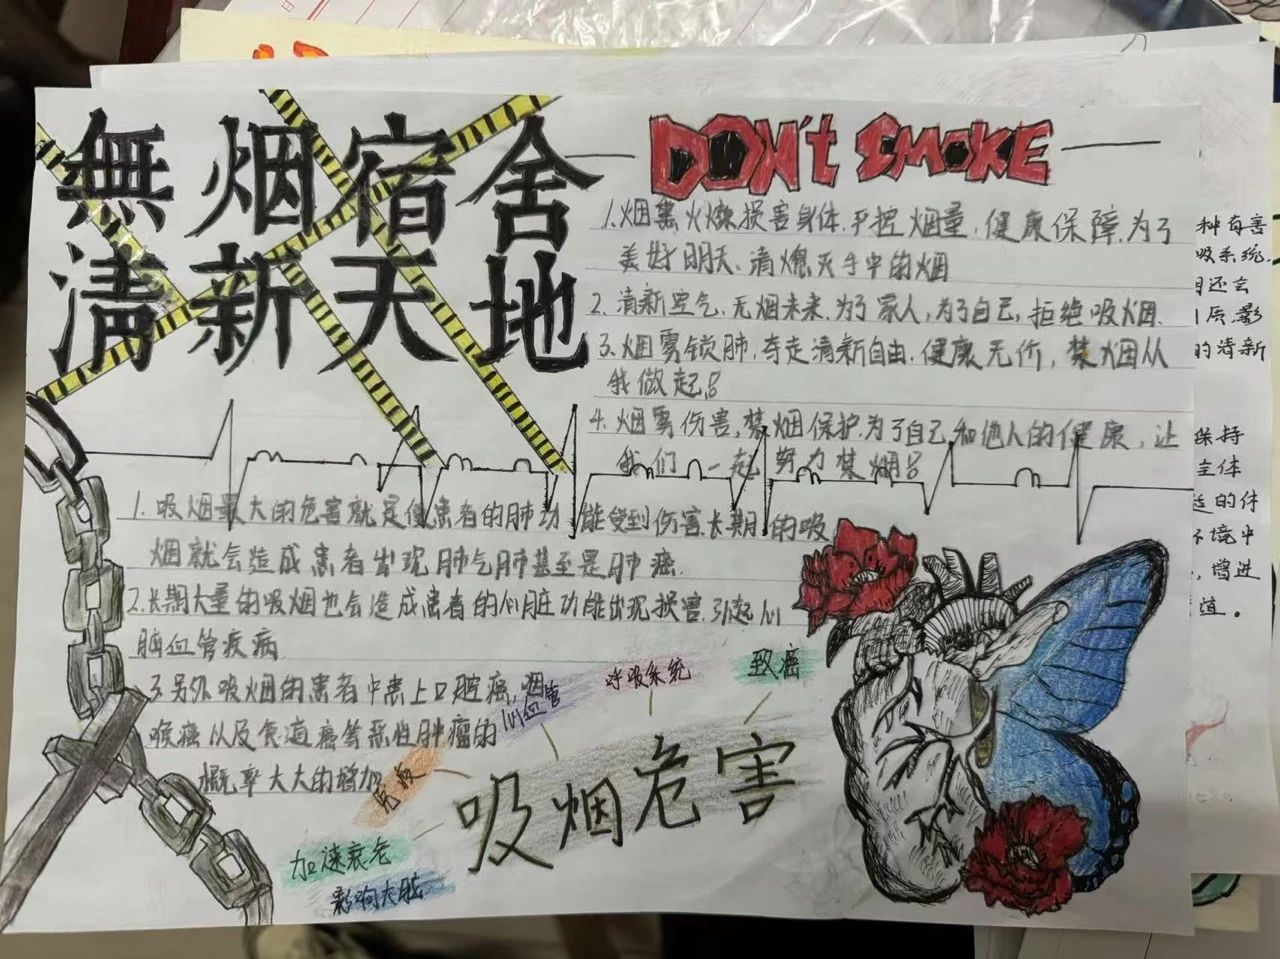 無烟宿舍
清新天地
DON't SMOKE
1.烟熏火燎损害身体,平控烟量,健康保障,为了
美好明天,清熄灭手中的烟
2.清新空气,无烟未来,为了家人,为了自己,拒绝吸烟.
3.烟雾锁肺,夺走清新自由,健康无价,禁烟从
我做起!
4.烟雾伤害,禁烟保护,为了自己和他人的健康,让
我们一起努力禁烟!
1.吸烟最大的危害就是使患者的肺功能受到伤害长期的吸
烟就会造成患者出现肺气肿甚至是肺癌.
2.长期大量的吸烟也会造成患者的心脏功能出现损害,引起心
脑血管疾病
3.另外吸烟的患者中患上口腔癌,咽
喉癌以及食道癌等恶性肿瘤的
概率大大的增加
心血管
呼吸系统
致癌
免疫
吸烟危害
加速衰老
影响大脑
种有害
吸系统.
还会
影
的清新
保持
主体
的什
环境中
,增进